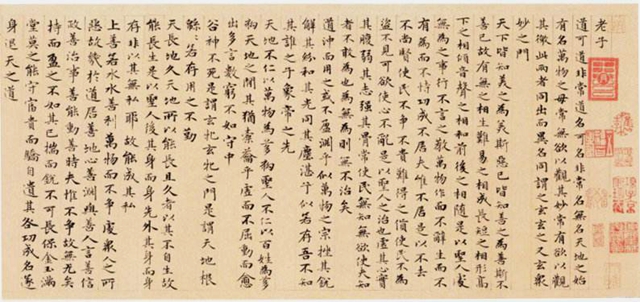 老子
道可道非常道名可名非常名無名天地之始
有名萬物之母常無欲以觀其妙常有欲以觀
其徼此兩者同出而異名同謂之玄玄之又玄衆
妙之門
天下皆知美之為美斯惡已皆知善之為善斯不
善已故有無之相生難易之相成長短之相形高
下之相傾音聲之相和前後之相隨是以聖人處
無為之事行不言之教萬物作而不辭生而不
有為而不恃功成不居夫惟不居是以不去
不尚賢使民不爭不貴難得之貨使民不為
盜不見可欲使心不亂是以聖人之治也虛其心實
其腹弱其志強其骨常使民無知無欲使夫知
者不敢為也為無為則無不治矣
道沖而用之或不盈淵乎似萬物之宗挫其銳
解其紛和其光同其塵湛乎似若存吾不知
其誰之子象帝之先
天地不仁以萬物為芻狗聖人不仁以百姓為芻
狗天地之間其猶橐籥乎虛而不屈動而愈
出多言數窮不如守中
谷神不死是謂玄牝玄牝之門是謂天地根
綿綿若存用之不勤
天長地久天地所以能長且久者以其不自生故
能長生是以聖人後其身而身先外其身而身
存非以其無私耶故能成其私
上善若水水善利萬物而不爭處衆人之所
惡故幾於道居善地心善淵與善人言善信
政善治事善能動善時夫惟不爭故無尤矣
持而盈之不如其已揣而銳之不可長保金玉滿
堂莫之能守富貴而驕自遺其咎功成名遂
身退天之道